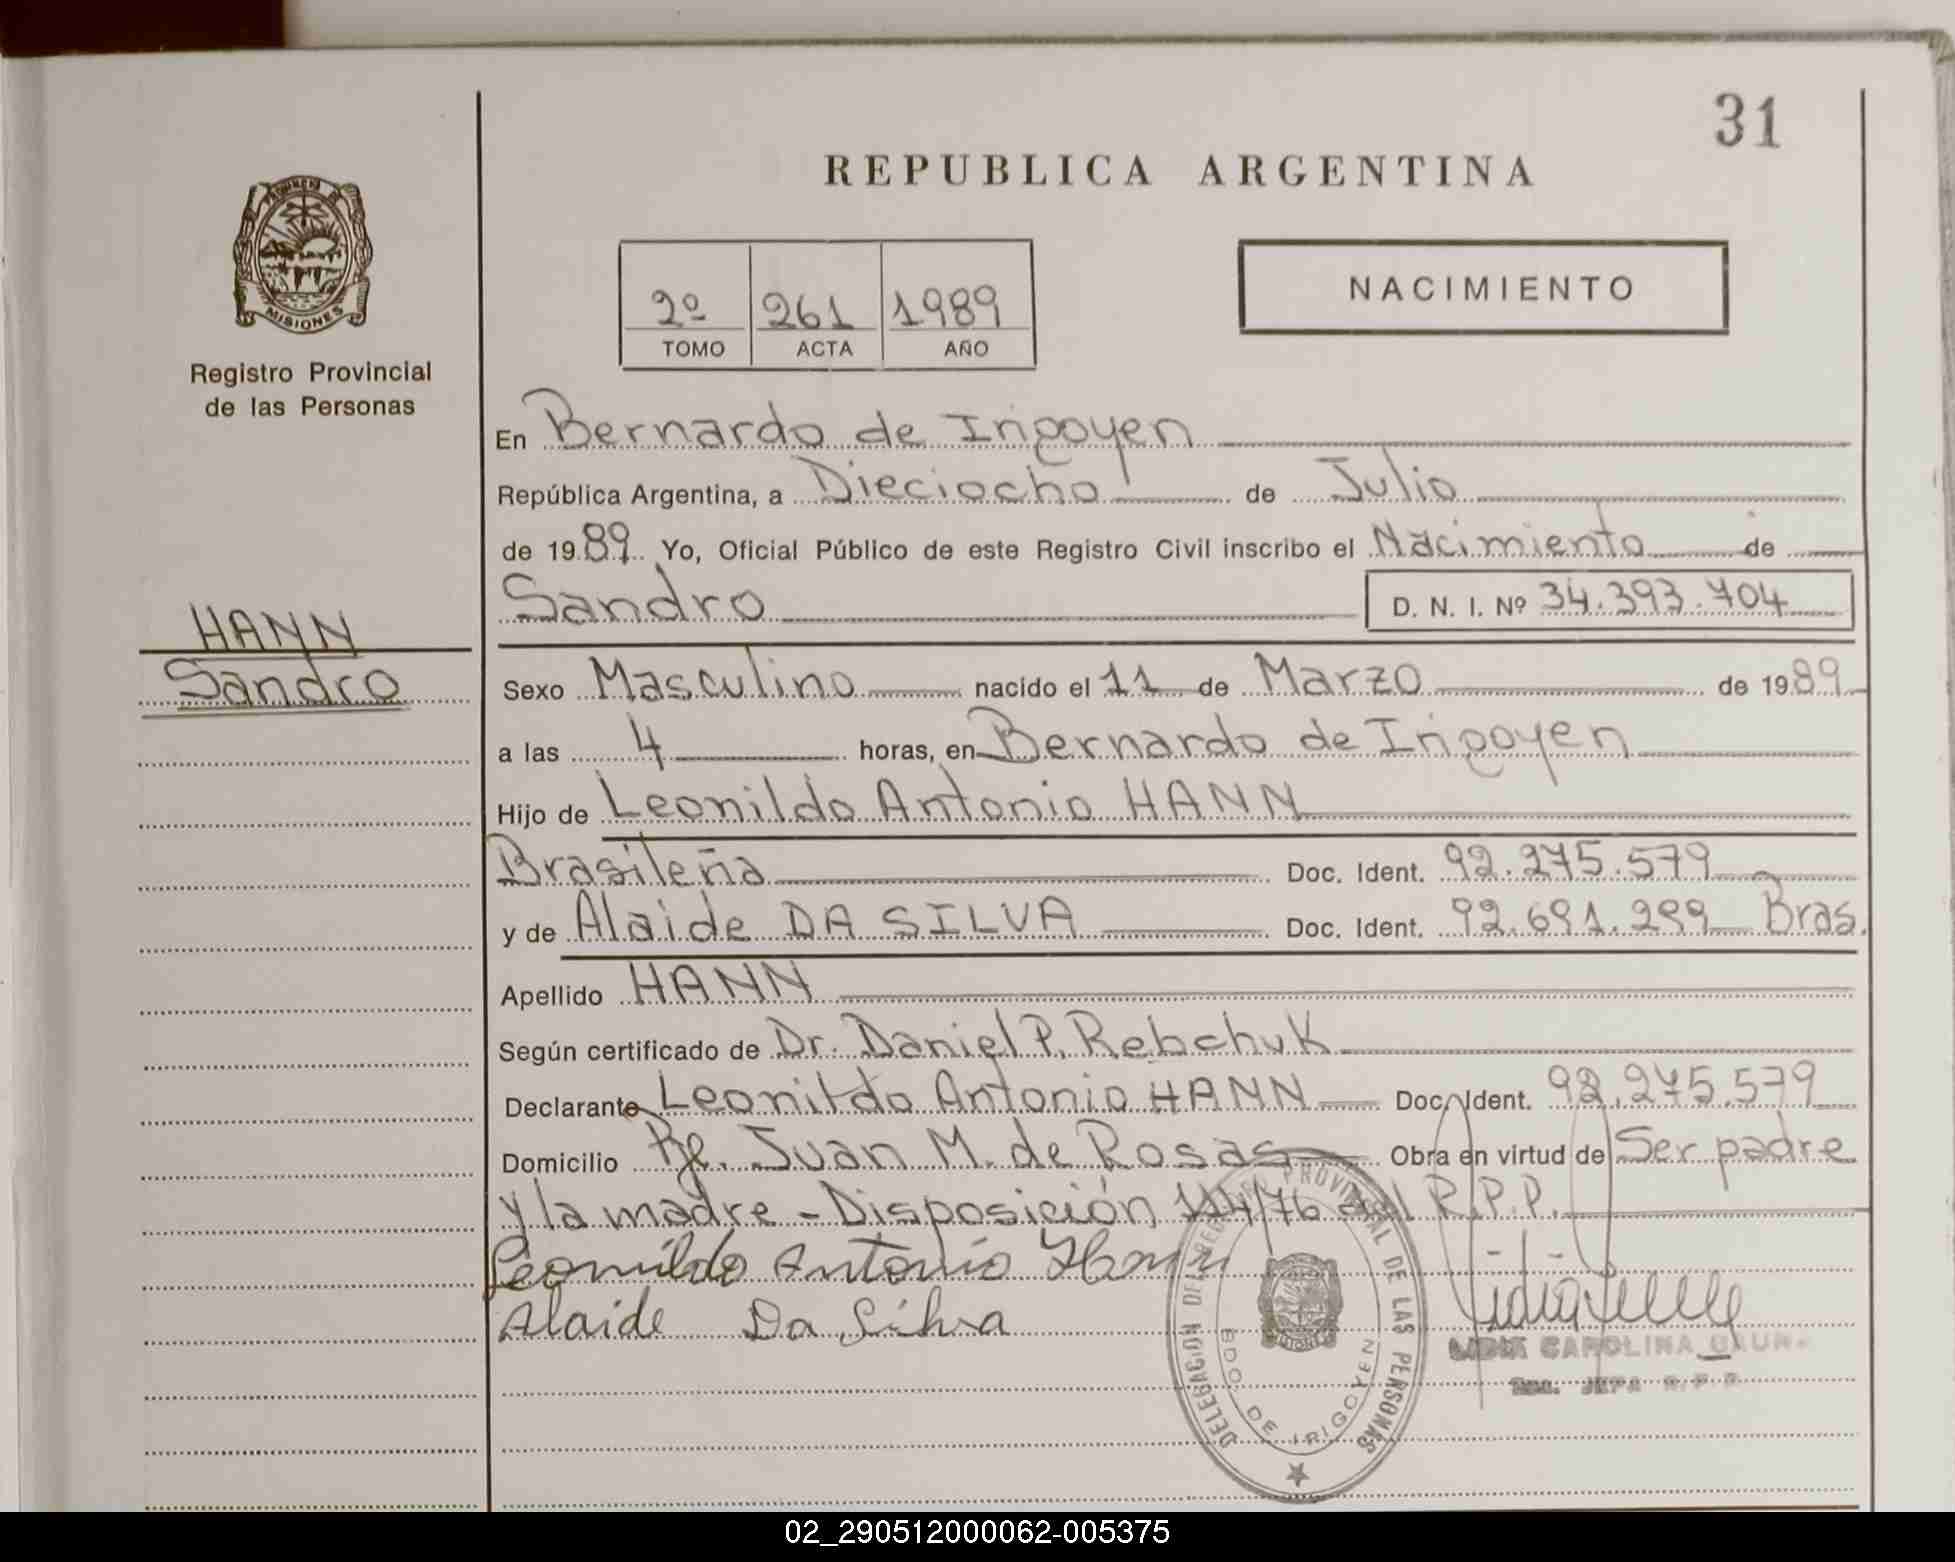 31
REPUBLICA ARGENTINA
PROVINCIA DE
MISIONES
Registro Provincial
de las Personas
2º 261 1989
TOMO ACTA AÑO
NACIMIENTO
En Bernardo de Irigoyen
República Argentina, a Dieciocho de Julio
de 1989 Yo, Oficial Público de este Registro Civil inscribo el Nacimiento de
Sandro D. N. I. Nº 34.393.704
HANN
Sandro
Sexo Masculino nacido el 11 de Marzo de 1989
a las 4 horas, en Bernardo de Irigoyen
Hijo de Leonildo Antonio HANN
Brasileña Doc. Ident. 92.275.579
y de Alaide DA SILVA Doc. Ident. 92.691.299 Bras.
Apellido HANN
Según certificado de Dr. Daniel P. Rebchuk
Declarante Leonildo Antonio HANN Doc. Ident. 92.275.579
Domicilio Pje. Juan M. de Rosas Obra en virtud de Ser padre
y la madre - Disposición 114/76 del R.P.P.
Leonildo Antonio Hann
Alaide Da Silva
DELEGACION DEL REGISTRO PROVINCIAL DE LAS PERSONAS
BDO. DE IRIGOYEN
MISIONES
LIDIA CAROLINA
JEFA R.P.P.
02_290512000062-005375